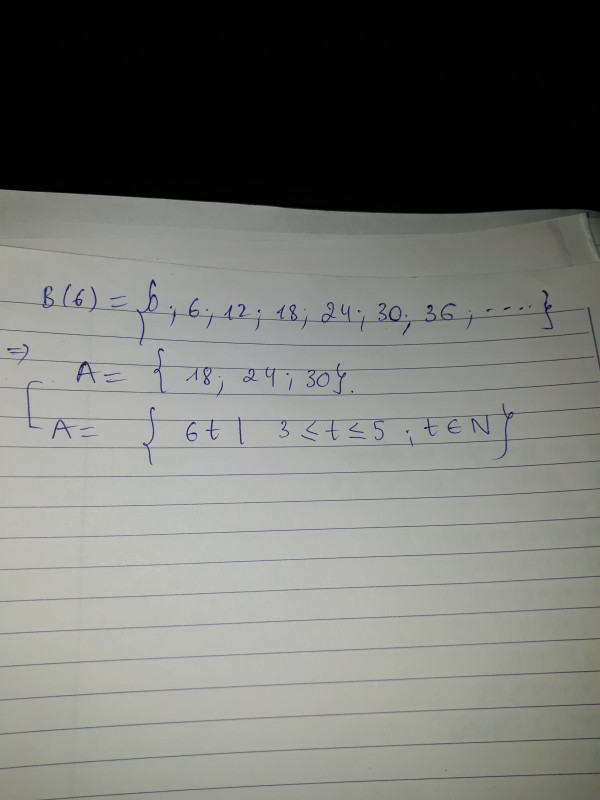 B(6) = {0; 6; 12; 18; 24; 30; 36; ....}
=> A = {18; 24; 30}.
A = {6t | 3 ≤ t ≤ 5; t ∈ N}